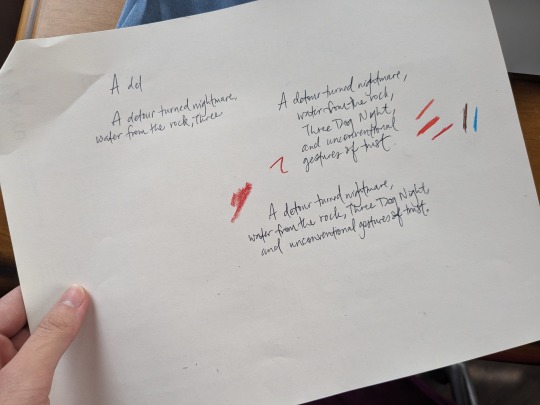 A del
A detour turned nightmare,
water from the rock, Three
A detour turned nightmare,
water from the rock,
Three Dog Night,
and unconventional
gestures of trust.
A detour turned nightmare,
water from the rock, Three Dog Night,
and unconventional gestures of trust.